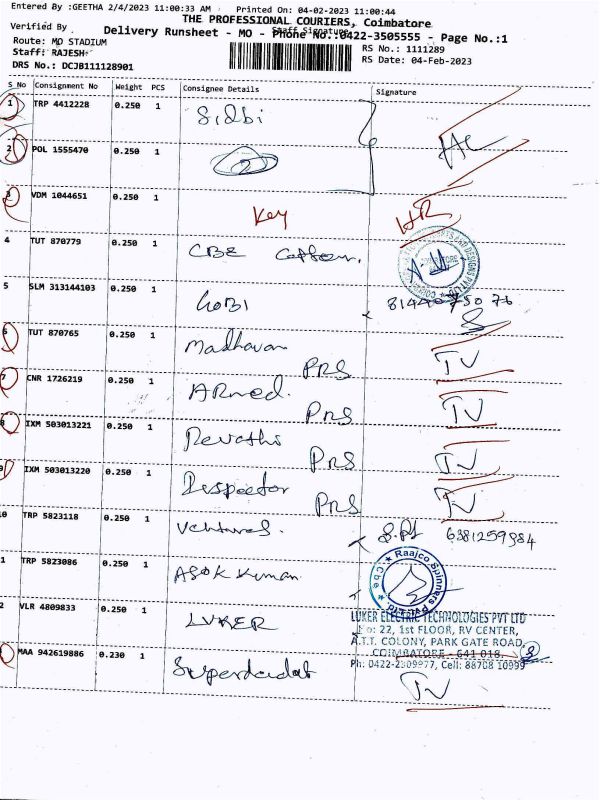 Entered By :GEETHA 2/4/2023 11:00:33 AM Printed On: 04-02-2023 11:00:44
THE PROFESSIONAL COURIERS, Coimbatore
Verified By Staff Signature
Delivery Runsheet - MO - Phone No.:0422-3505555 - Page No.:1
Route: MO STADIUM RS No.: 1111289
Staff: RAJESH RS Date: 04-Feb-2023
DRS No.: DCJB111128901
S No Consignment No Weight PCS Consignee Details Signature
1 TRP 4412228 0.250 1 Sidbi
2 POL 1555470 0.250 1 2
3 VDM 1044651 0.250 1 Key HR
4 TUT 870779 0.250 1 CBE
5 SLM 313144103 0.250 1 GOBI
6 TUT 870765 0.250 1 Madhavan PRS TV
7 CNR 1726219 0.250 1 ARmed. PRS TV
8 IXM 503013221 0.250 1 Revathi PRS TV
9 IXM 503013220 0.250 1 Inspector PRS TV
0 TRP 5823118 0.250 1 Ventures. 6381259984
1 TRP 5823086 0.250 1 ASOK Kumar
Raajco Spinners Pvt Ltd. Cbe
2 VLR 4809833 0.250 1 LUKER
LUKER ELECTRIC TECHNOLOGIES PVT LTD
No: 22, 1st FLOOR, RV CENTER,
A.T.T. COLONY, PARK GATE ROAD,
COIMBATORE - 641 018.
Ph: 0422-2309977, Cell: 88708 10999
MAA 942619886 0.230 1 TV